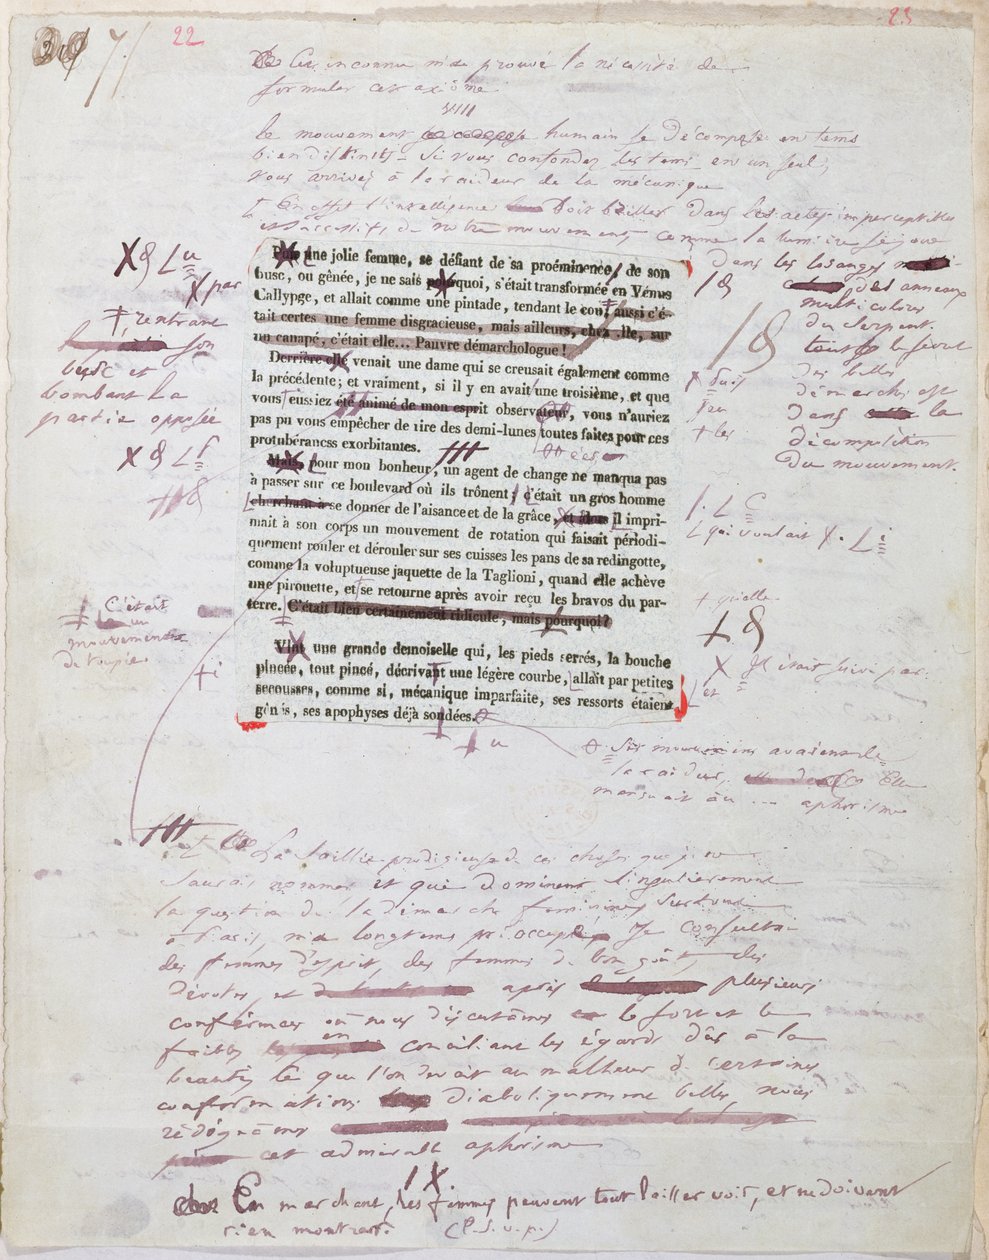 22
23
Cette inconnue m'a prouvé la nécessité de
formuler cet axiôme
VIII
le mouvement humain se décompose en tems
bien distincts - si vous confondez les tems en un seul,
vous arrivez à la raideur de la mécanique
En effet l'intelligence doit briller dans les actes imperceptibles
et successifs de notre mouvement comme la lumière se joue
dans les losanges
des anneaux
multicolores
du serpent.
tout le secret
des belles
démarches est
dans la
décomposition
du mouvement.
Puis une jolie femme, se défiant de sa proéminence, de son
busc, ou gênée, je ne sais pourquoi, s'était transformée en Vénus
Callypge, et allait comme une pintade, tendant le cou, aussi c'é-
tait certes une femme disgracieuse, mais ailleurs, chez elle, sur
un canapé, c'était elle... Pauvre démarchologue!
Derrière elle venait une dame qui se creusait également comme
la précédente; et vraiment, si il y en avait une troisième, et que
vous eussiez été animé de mon esprit observateur, vous n'auriez
pas pu vous empêcher de rire des demi-lunes toutes faites pour ces
protubérancss exorbitantes.
Mais, pour mon bonheur, un agent de change ne manqua pas
à passer sur ce boulevard où ils trônent; c'était un gros homme
cherchant à se donner de l'aisance et de la grâce, et dont il impri-
mait à son corps un mouvement de rotation qui faisait périodi-
quement rouler et dérouler sur ses cuisses les pans de sa redingotte,
comme la voluptueuse jaquette de la Taglioni, quand elle achève
une pirouette, et se retourne après avoir reçu les bravos du par-
terre. C'était bien certainement ridicule, mais pourquoi?
Vint une grande demoiselle qui, les pieds serrés, la bouche
pincée, tout pincé, décrivant une légère courbe, allait par petites
secousses, comme si, mécanique imparfaite, ses ressorts étaient
gênés, ses apophyses déjà soudées.
par
rentrant
son
busc et
bombant la
partie opposée
C'était
un
mouvement
de toupie
les
qui voulait
qu'elle
Il était suivi par
et
Ses mouvemens avaient de
la raideur, Elle
manquait au ... aphorisme
La saillie prodigieuse de ces choses que je ne
saurais nommer et qui dominent singulièrement
la question de la démarche féminine surtout
à Paris, m'a longtems préoccupé. Je consultai
des femmes d'esprit, des femmes de bon goût, des
dévotes, et après plusieurs
conférences où nous discutâmes le fort et le
faible en conciliant les égards dûs à la
beauté que l'on devait au malheur de certaines
conformations diaboliquement belles, nous
rédigeâmes
cet admirable aphorisme
IX.
En marchant, les femmes peuvent tout laisser voir, et ne doivent
rien montrer. (P.S.V.P.)